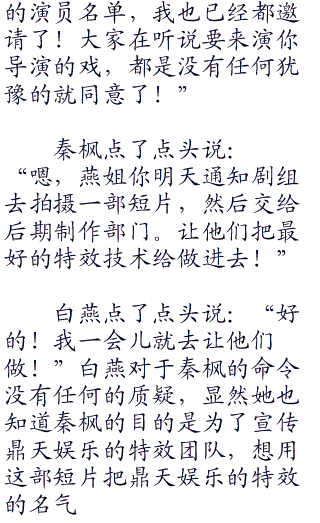 的演员名单，我也已经都邀
请了！大家在听说要来演你
导演的戏，都是没有任何犹
豫的就同意了！”
秦枫点了点头说：
“嗯，燕姐你明天通知剧组
去拍摄一部短片，然后交给
后期制作部门。让他们把最
好的特效技术给做进去！”
白燕点了点头说：“好
的！我一会儿就去让他们
做！”白燕对于秦枫的命令
没有任何的质疑，显然她也
知道秦枫的目的是为了宣传
鼎天娱乐的特效团队，想用
这部短片把鼎天娱乐的特效
的名气